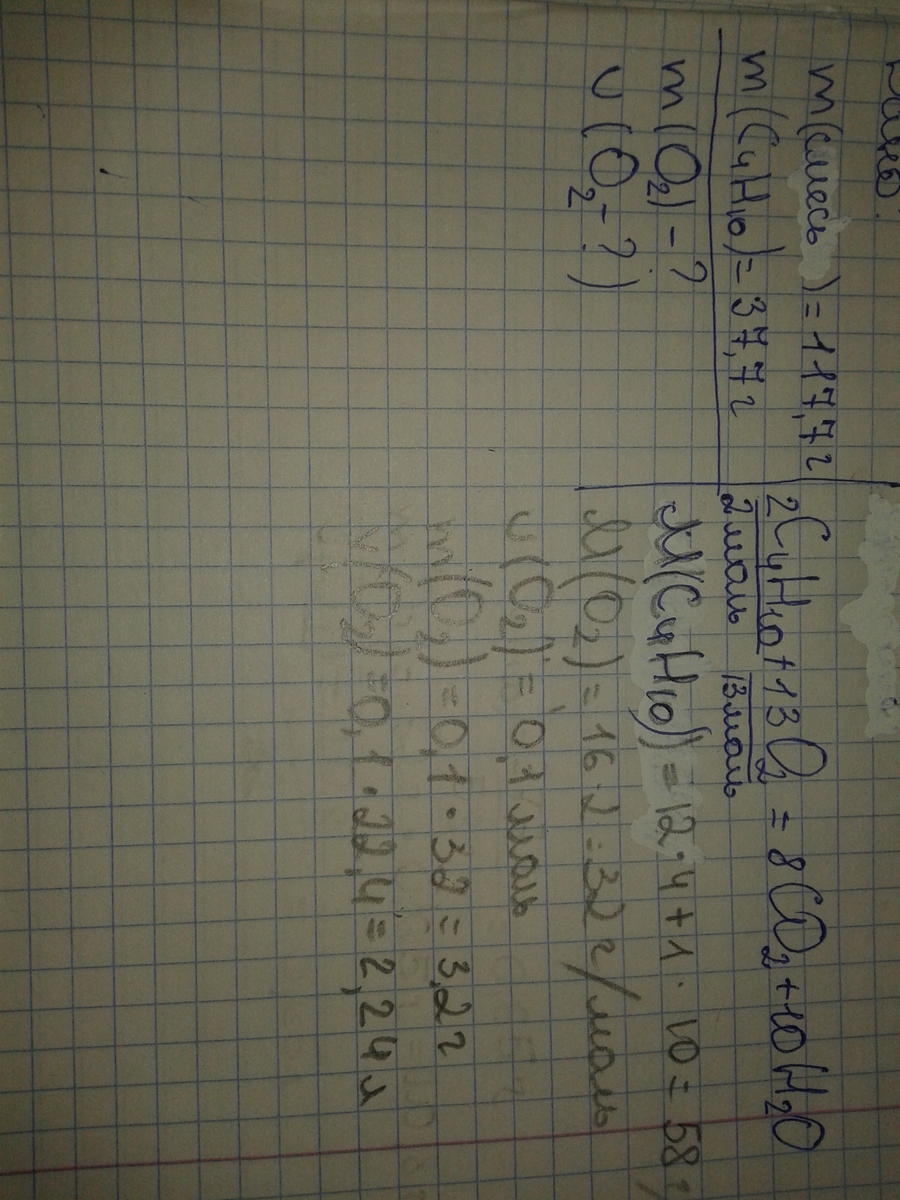 Дано:
m(смесь) = 117,7г
m(C4H10) = 37,7г
m(O2) - ?
υ(O2 - ?)
2C4H10 + 13O2 = 8CO2 + 10H2O
2моль 13моль
M(C4H10) = 12·4+1·10 = 58
M(O2) = 16·2 = 32 г/моль
υ(O2) = 0,1 моль
m(O2) = 0,1 · 32 = 3,2г
υ(O2) = 0,1 · 22,4 = 2,24л